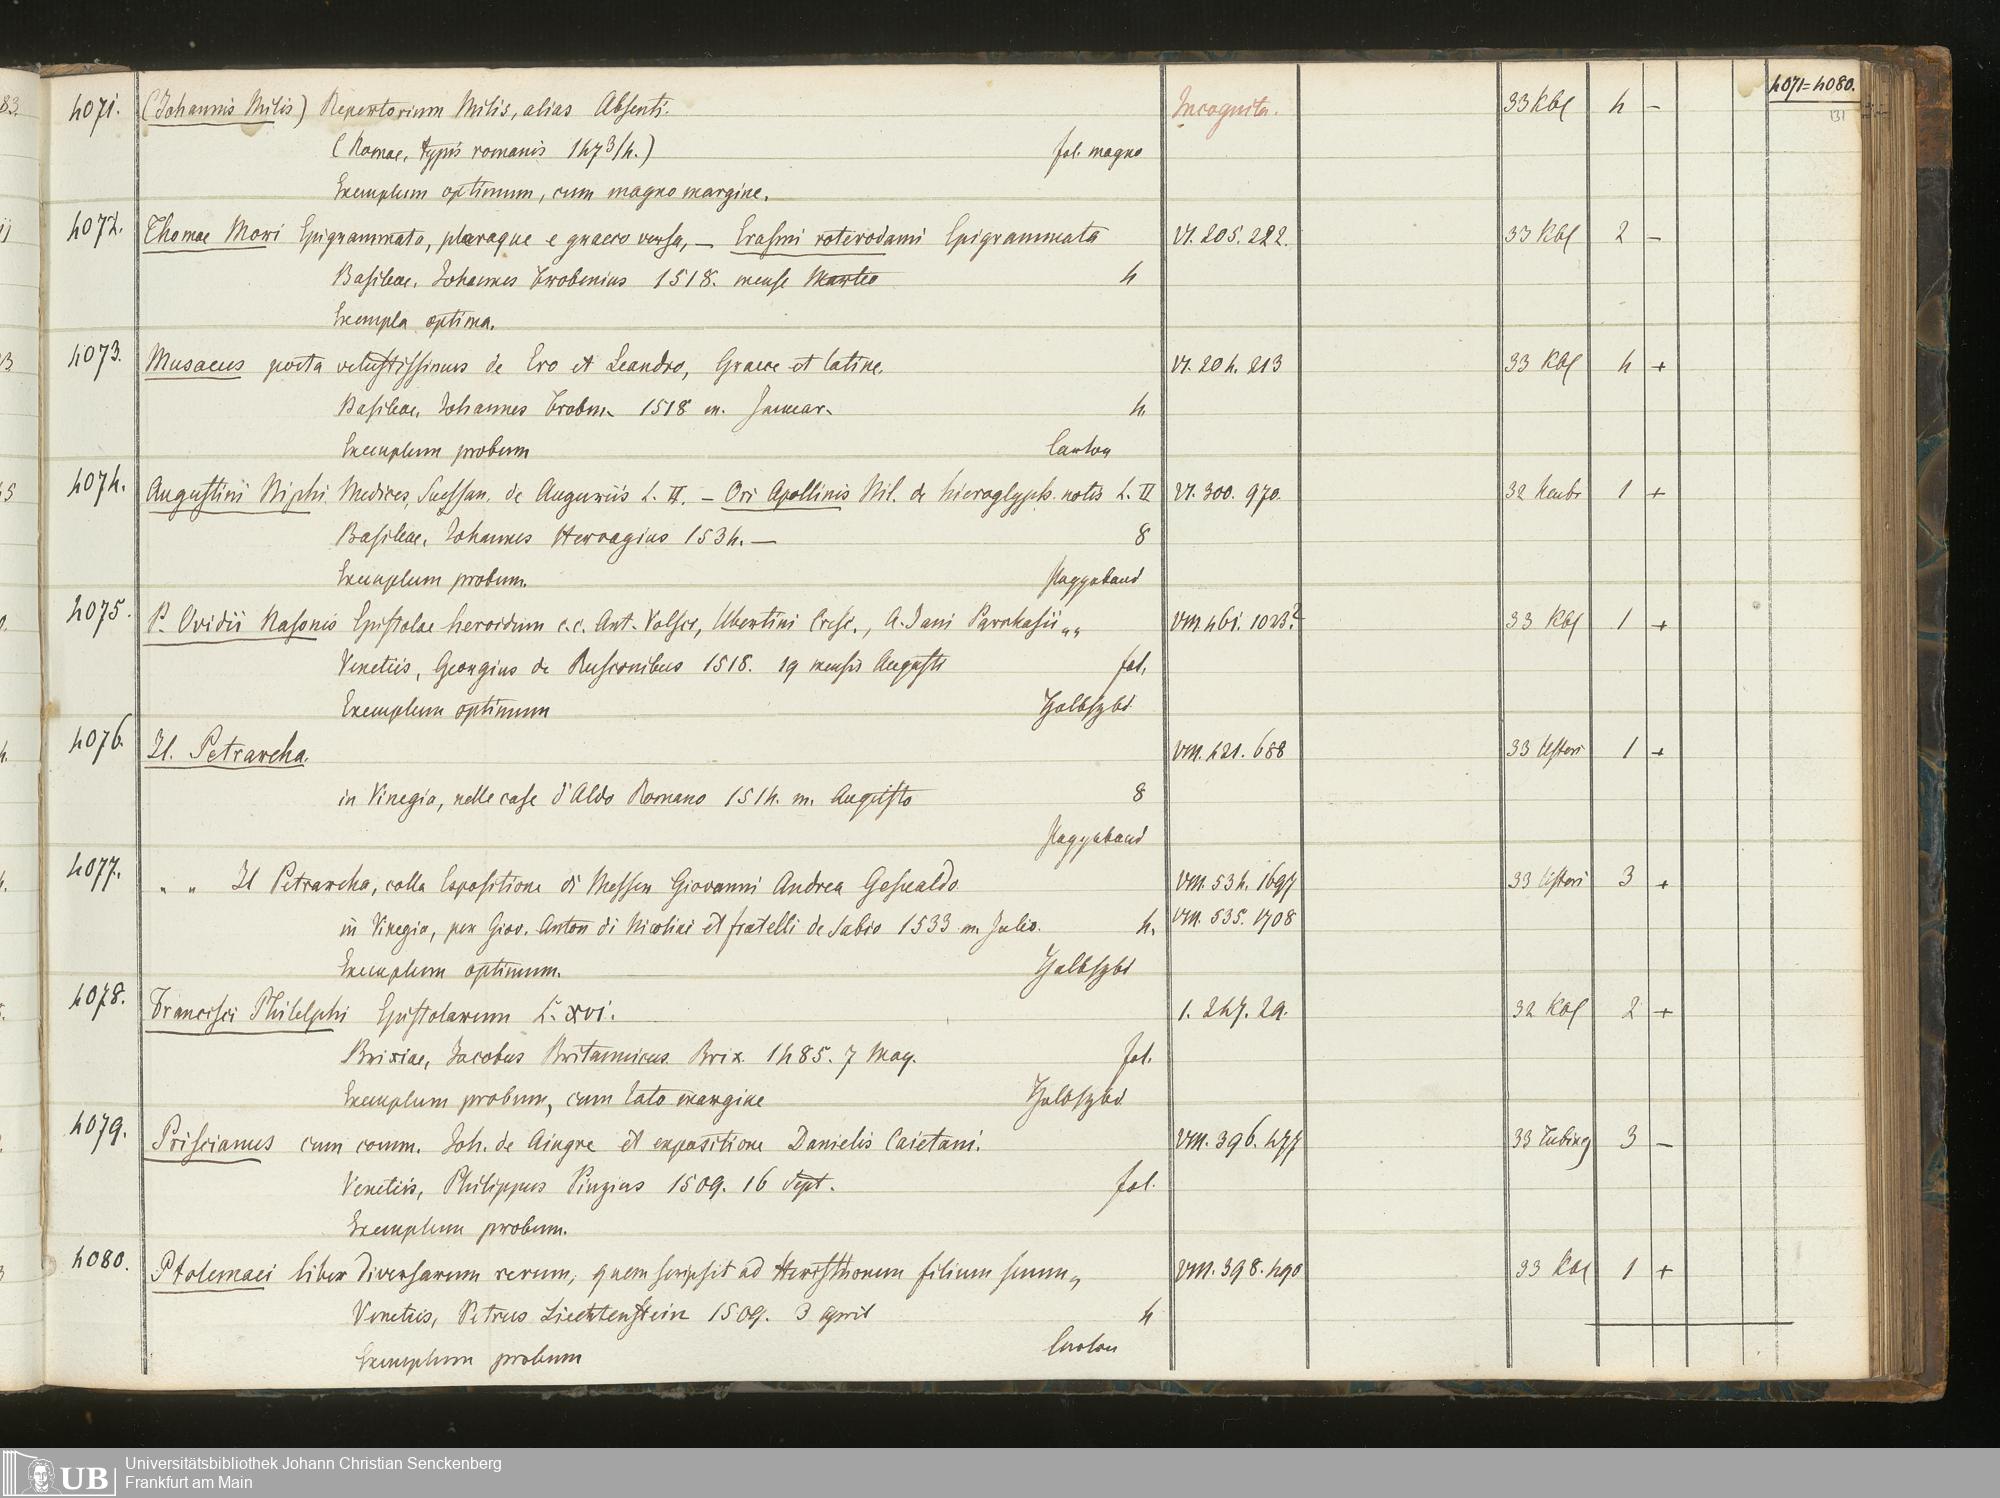 4071=4080.
131
4071. (Johannis Milis) Repertorium Milis, alias Absenti. Incognita. 33 Kbl 4 –
(Romae, typis romanis 1473/4.) fol. magno
Exemplum optimum, cum magno margine.
4072. Thomae Mori Epigrammata, pleraque e graeco versa, — Erasmi roterodami Epigrammata VI. 205. 222. 33 Kbl 2 –
Basileae, Johannes Frobenius 1518. mense Martio 4
Exempla optima.
4073. Musaeus poeta vetustissimus de Ero et Leandro, Graece et latine. VI. 204. 213 33 Kbl 4 +
Basileae, Johannes Froben. 1518 m. Januar. 4
Exemplum probum Carton
4074. Augustini Niphi Medices, Suessan. de Auguriis L. II. — Ori Apollinis Nil. de hieroglyph. notis L. II VI. 300. 970. 32 1 +
Basileae, Johannes Hervagius 1534. — 8
Exemplum probum. Pappband
4075. P. Ovidii Nasonis Epistolae heroidum c.c. Ant. Volsci, Ubertini Cresc., A. Jani Parrhasii „„ VIII. 461. 1023.? 33 Kbl 1 +
Venetiis, Georgius de Rusconibus 1518. 19 mensis Augusti fol.
Exemplum optimum Halbfzbd
4076. Il. Petrarcha. VIII. 421. 688 33 1 +
in Vinegia, nelle case d'Aldo Romano 1514. m. Augusto 8
Pappband
4077. „ „ Il Petrarcha, colla Espositione di Messer Giovanni Andrea Gesualdo VIII. 534. 1697 33 3 +
in Vinegia, per Giov. Anton di Nicolini et fratelli de Sabio 1533 m. Julio. 4. VIII. 535. 1708
Exemplum optimum. Halbfzbd
4078. Francisci Philelphi Epistolarum L. xvi. 1. 247. 29. 32 Kbl 2 +
Brixiae, Jacobus Britannicus Brix. 1485. 7 May. fol.
Exemplum probum, cum lato margine Halbfzbd
4079. Priscianus cum comm. Joh. de Aingre et expositione Danielis Caietani. VIII. 396. 477 33 Tubing 3 –
Venetiis, Philippus Pinzius 1509. 16 Sept. fol.
Exemplum probum.
4080. Ptolemaei liber diversarum rerum, quem scripsit ad Heristhonem filium suum„ VIII. 398. 490 33 Kbl 1 +
Venetiis, Petrus Liechtenstein 1509. 3 April 4
Exemplum probum Carton
UB Universitätsbibliothek Johann Christian Senckenberg
Frankfurt am Main